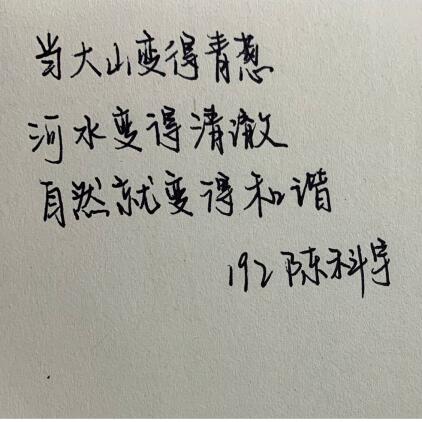 当大山变得青葱
河水变得清澈
自然就变得和谐
192陈科宇